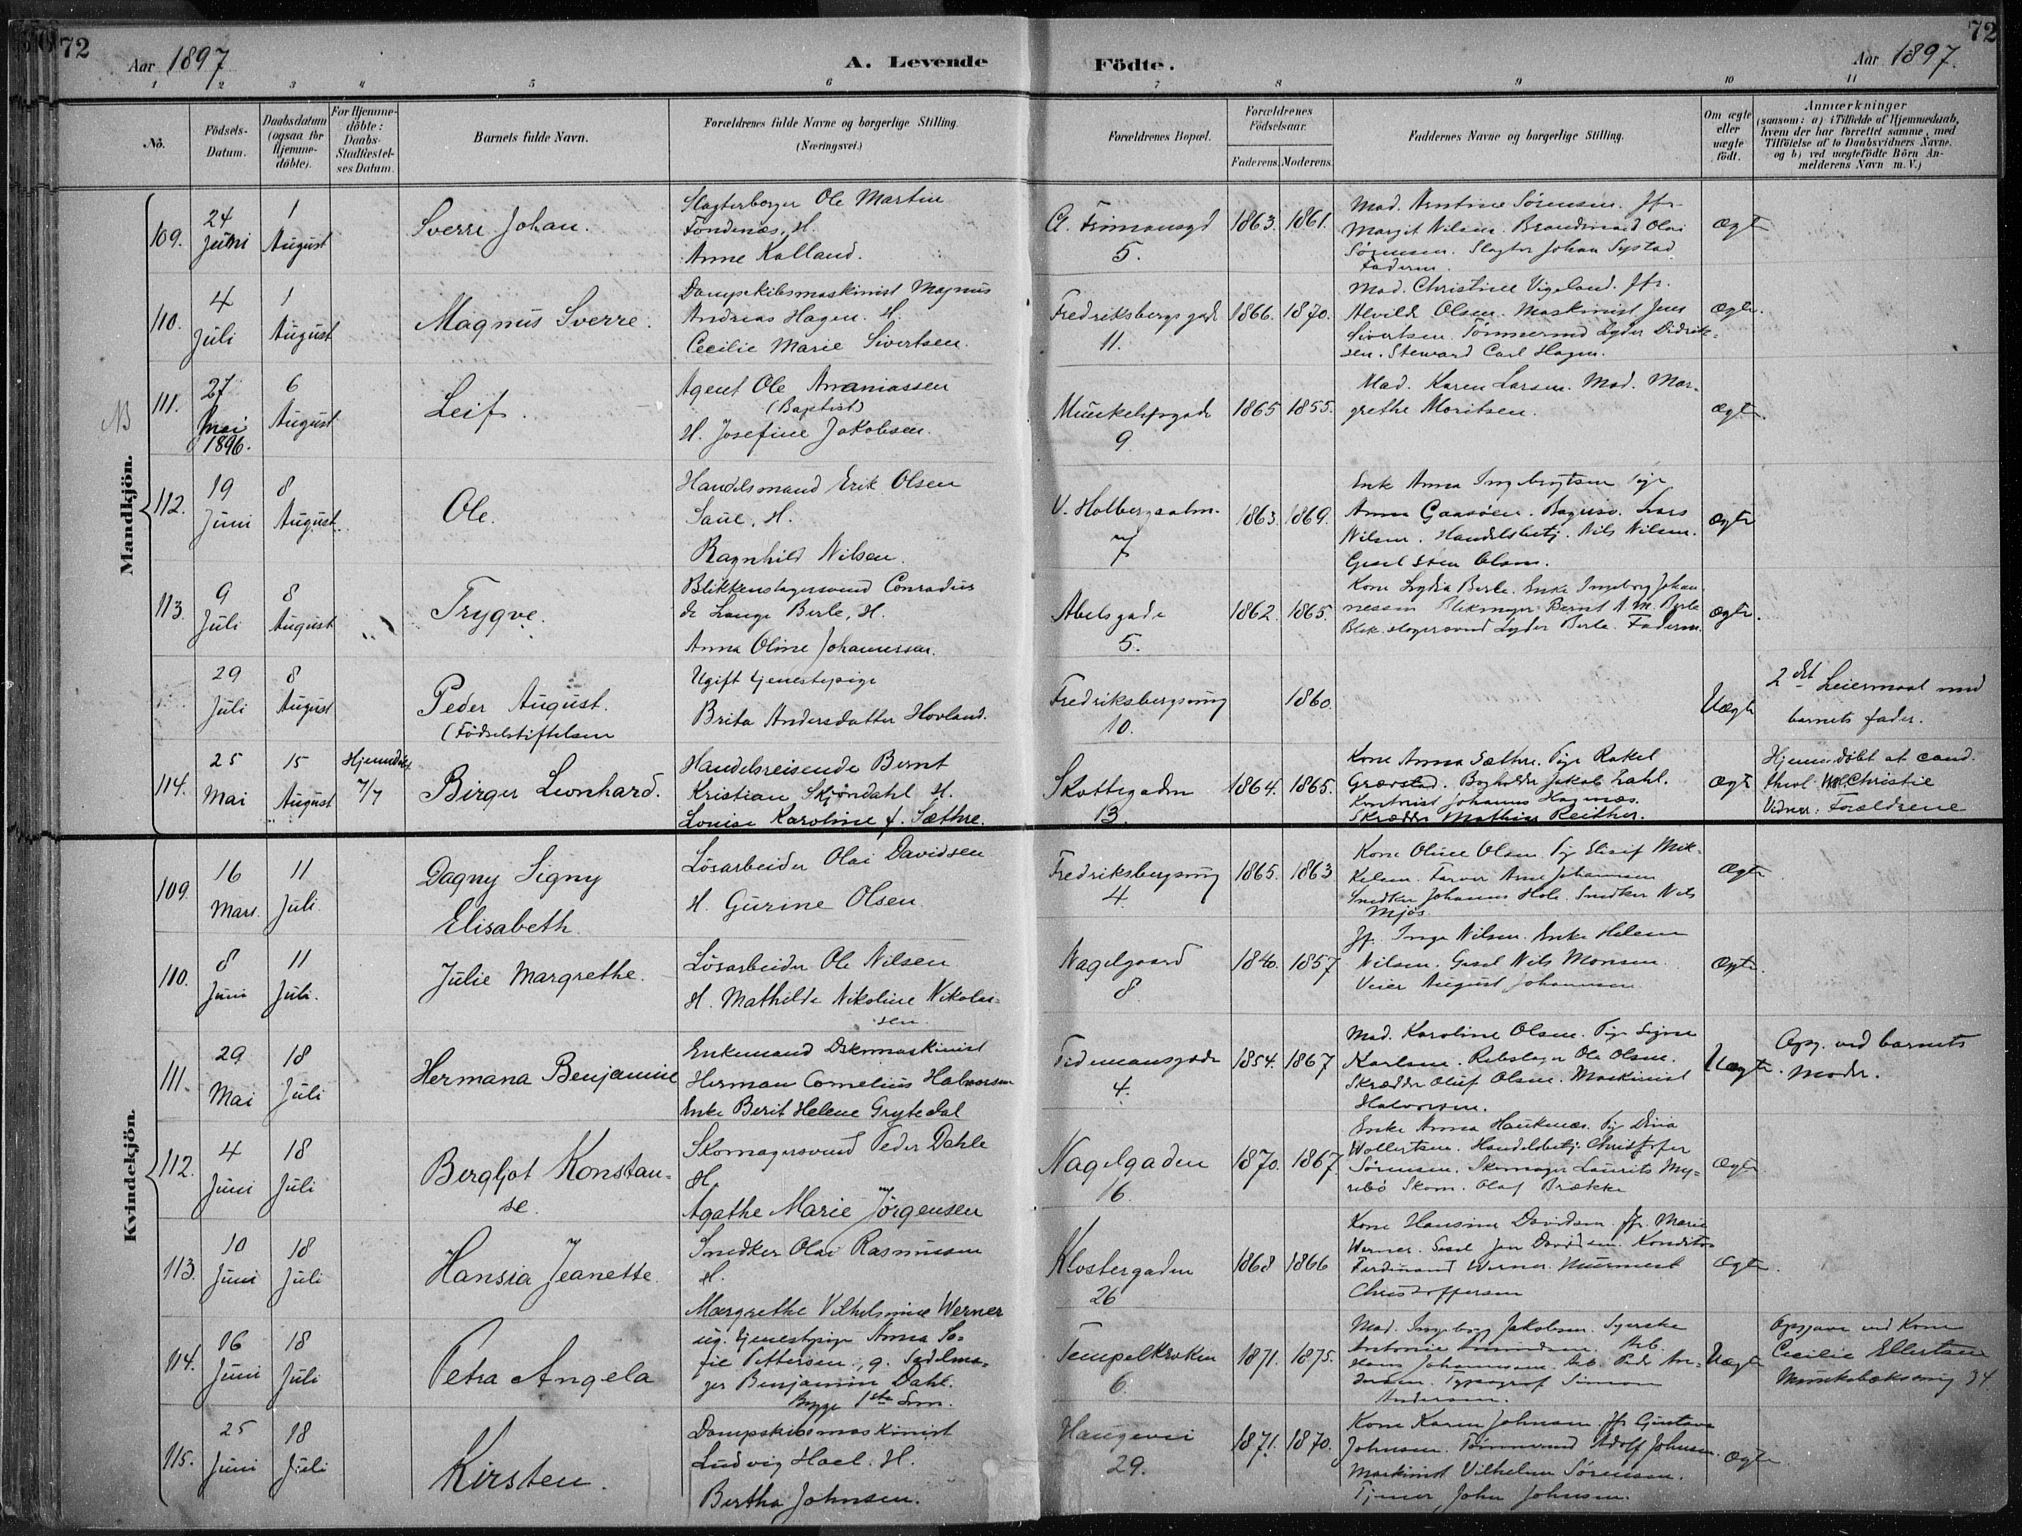 72
Aar 1897
A. Levende
Födte.
Aar 1897.
72
1 2 3 4 5 6 7 8 9 10 11
No.
Födsels-Datum.
Daabsdatum (ogsaa for Hjemmedöbte).
For Hjemmedöbte: Daabs-Stadfæstelses Datum.
Barnets fulde Navn.
Forældrenes fulde Navne og borgerlige Stilling.
(Næringsvei.)
Forældrenes Bopæl.
Forældrenes Födselsaar.
Faderens. Moderens.
Faddernes Navne og borgerlige Stilling.
Om ægte eller uægte födt.
Anmærkninger
(saasom: a) i Tilfælde af Hjemmedaab, hvem der har forrettet samme, med Tilföielse af to Daabsvidners Navne, og b) ved uægtefödte Börn Anmelderens Navn m. V.)
Mandkjön.
109.
24 Juni
1 August
Sverre Johan.
Slagterborger Ole Martin
Fondenæs, H.
Anne Kalland.
5.
1863. 1861.
Mad. Arntine Sørensen. Jfr.
Margit Nilsen. Brandmand Olai
Sørensen. Slagter Johan Systad
Faderen.
Ægte
110.
4 Juli
1 August
Magnus Sverre.
Dampskibsmaskinist Magnus
Andreas Hagen. H.
Cecilie Marie Sivertsen.
Fredriksbergsgade
11.
1866. 1870.
Mad. Christine Vigeland. Jfr.
Alvilde Olsen. Maskinist Jens
Sivertsen. Tømmermd Lyder Didrik-
sen. Steward Carl Hagen.
Ægte.
111.
27 Mai 1896.
6 August
Leif.
Agent Ole Ananiassen
(Baptist)
H. Josefine Jakobsen.
9
1865 1855.
Mad. Karen Larsen. Mad. Mar-
grethe Moritsen.
Ægte.
112.
19 Juni
8 August
Ole.
Handelsmand Erik Olsen
H.
Ragnhild Nilsen.
V. Holbergsalm.
7
1863. 1869.
Enke Anna Ingebrigtsen Pige
Anna Gaasøen. Lars
Nilsen. Handelsbetj. Nils Nilsen.
Gesel Sten Olsen.
Ægte
113.
9 Juli
8 August
Trygve.
Blikkenslagersvend Conradus
de Lange Berle, H.
Anna Oline Johannessen.
Abelsgade
5.
1862. 1865.
Kone Lydia Berle. Enke Ingeborg Johan
nessen Bernt A. M. Berle
Blik.slagersvend Lyder Berle. Faderen.
Ægte.
29 Juli
8 August
Peder August.
(Fødselstiftelsen
Ugift tjenestepige
Brita Andersdatter Hovland.
Fredriksbergsvug
10.
1860.
Uægte
2det Leiermaal med
barnets fader.
114.
25 Mai
15 August
Hjemmedøbt 7/7
Birger Leonhard.
Handelsreisende Bernt
Kristian Skjöndahl H.
Louise Karoline f. Sæthre.
Skottegaden
13.
1864. 1865.
Kone Anna Sæthre. Pige Rakel
Grævstad. Bogholder Jakob Zahl.
Kontorist Johannes Hagenæs.
Skrædder Mathias Reither.
Ægte
Hjemmedøbt af cand.
theol. Christie
Vidner: Forældrene
Kvindekjön.
109.
16 Mars.
11 Juli.
Dagny Signy
Elisabeth.
Løsarbeider Olai Davidsen
H. Gurine Olsen.
4
1865. 1863
Kone Oline Olsen. Pige Elisif Mik-
kelsen. Farver Arne Johannesen
Snedker Johannes Hole. Snedker Nils
Mjøs.
Ægte
110.
8 Juni
11 Juli.
Julie Margrethe.
Løsarbeider Ole Nilsen
H. Mathilde Nikoline Nikolai-
sen.
Nagelgaard
8.
1840. 1857
Jfr. Inga Nilsen. Enke Helene
Nilsen. Gesel Nils Monsen.
Veier August Johannesen
Ægte.
111.
29 Mai
18 Juli
Hermana Benjamine
Enkemand Dskmaskinist
Herman Cornelius Halvorsen
Enke Berit Helene Grytedal
Tidemansgade
4.
1854. 1867
Mad. Karoline Olsen. Pige Signe
Karlsen. Rebslager Ole Olsen.
Skrædder Oluf Olsen. Maskinist
Halvorsen.
Uægte.
Opg. ved barnets
moder.
112.
4 Juni
18 Juli
Bergljot Konstan-
se.
Skomagersvend Peder Dahle
H.
Agathe Marie Jörgensen
Nagelgaden
16.
1870. 1867.
Enke Anna Haukenæs. Pige Dina
Wollertsen. Handelsbetj. Christofer
Sørensen. Skomager Laurits My-
rebö Skom. Olaf Brække
Ægte.
113.
10 Juni
18 Juli
Hansia Jeanette.
Snedker Olai Rasmussen
H.
Margrethe Vilhelmine Werner
Klostergaden
26
1868 1866
Kone Hansine Davidsen. Jfr. Marie
Werner. Gesel Jan Davidsen. Konditor
Ferdinand Werner. Murmest.
Christoffersen
Ægte.
114.
16 Juni
18 Juli
Petra Angela
ug. tjenestepige Anna So-
fie Pettersen, g. Sadelma-
ger Benjamin Dahl.
Begge 1ste Leierm.
Tempelkroken
6.
1871. 1875.
Mad. Ingeborg Jakobsen. Syerske
Antonie Amundsen. Arb.
Hans Johannesen. Arb. Peder An-
dersen. Typograf Simon
Andersen.
Uægte
Opgave ved Kone
Cecilie Ellertsen
Munkebæksvug 34
115.
25 Juni
18 Juli
Kirsten.
Dampskibsmaskinist
Ludvig Hael. H.
Bertha Johnsen.
Haugevei
29.
1871. 1870.
Kone Karen Johnsen. Jfr. Gustava
Johnsen. Tømmermd Adolf Johnsen.
Maskinist Vilhelm Sørensen.
Tjener John Johnsen.
Ægte.